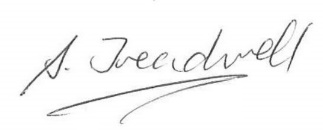 S. Treadwell